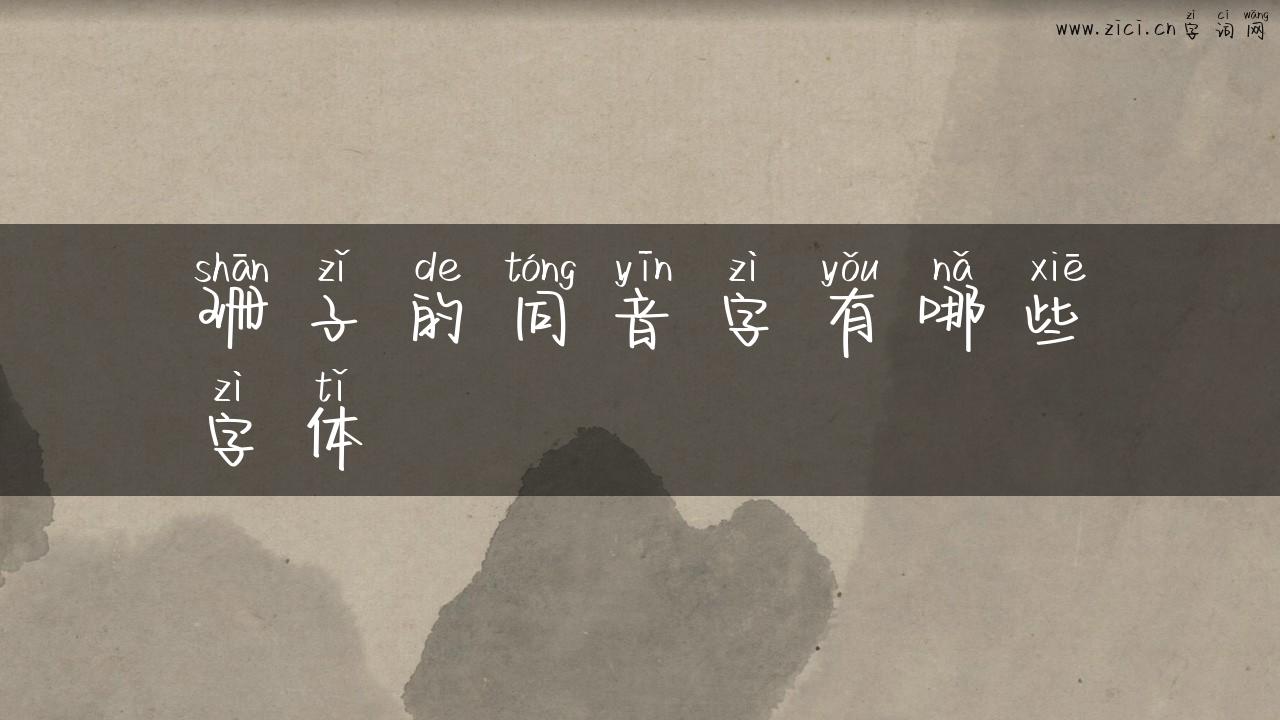 zì cí wǎng
www.zici.cn字词网
shān zǐ de tóng yīn zì yǒu nǎ xiē
珊子的同音字有哪些
zì tǐ
字体